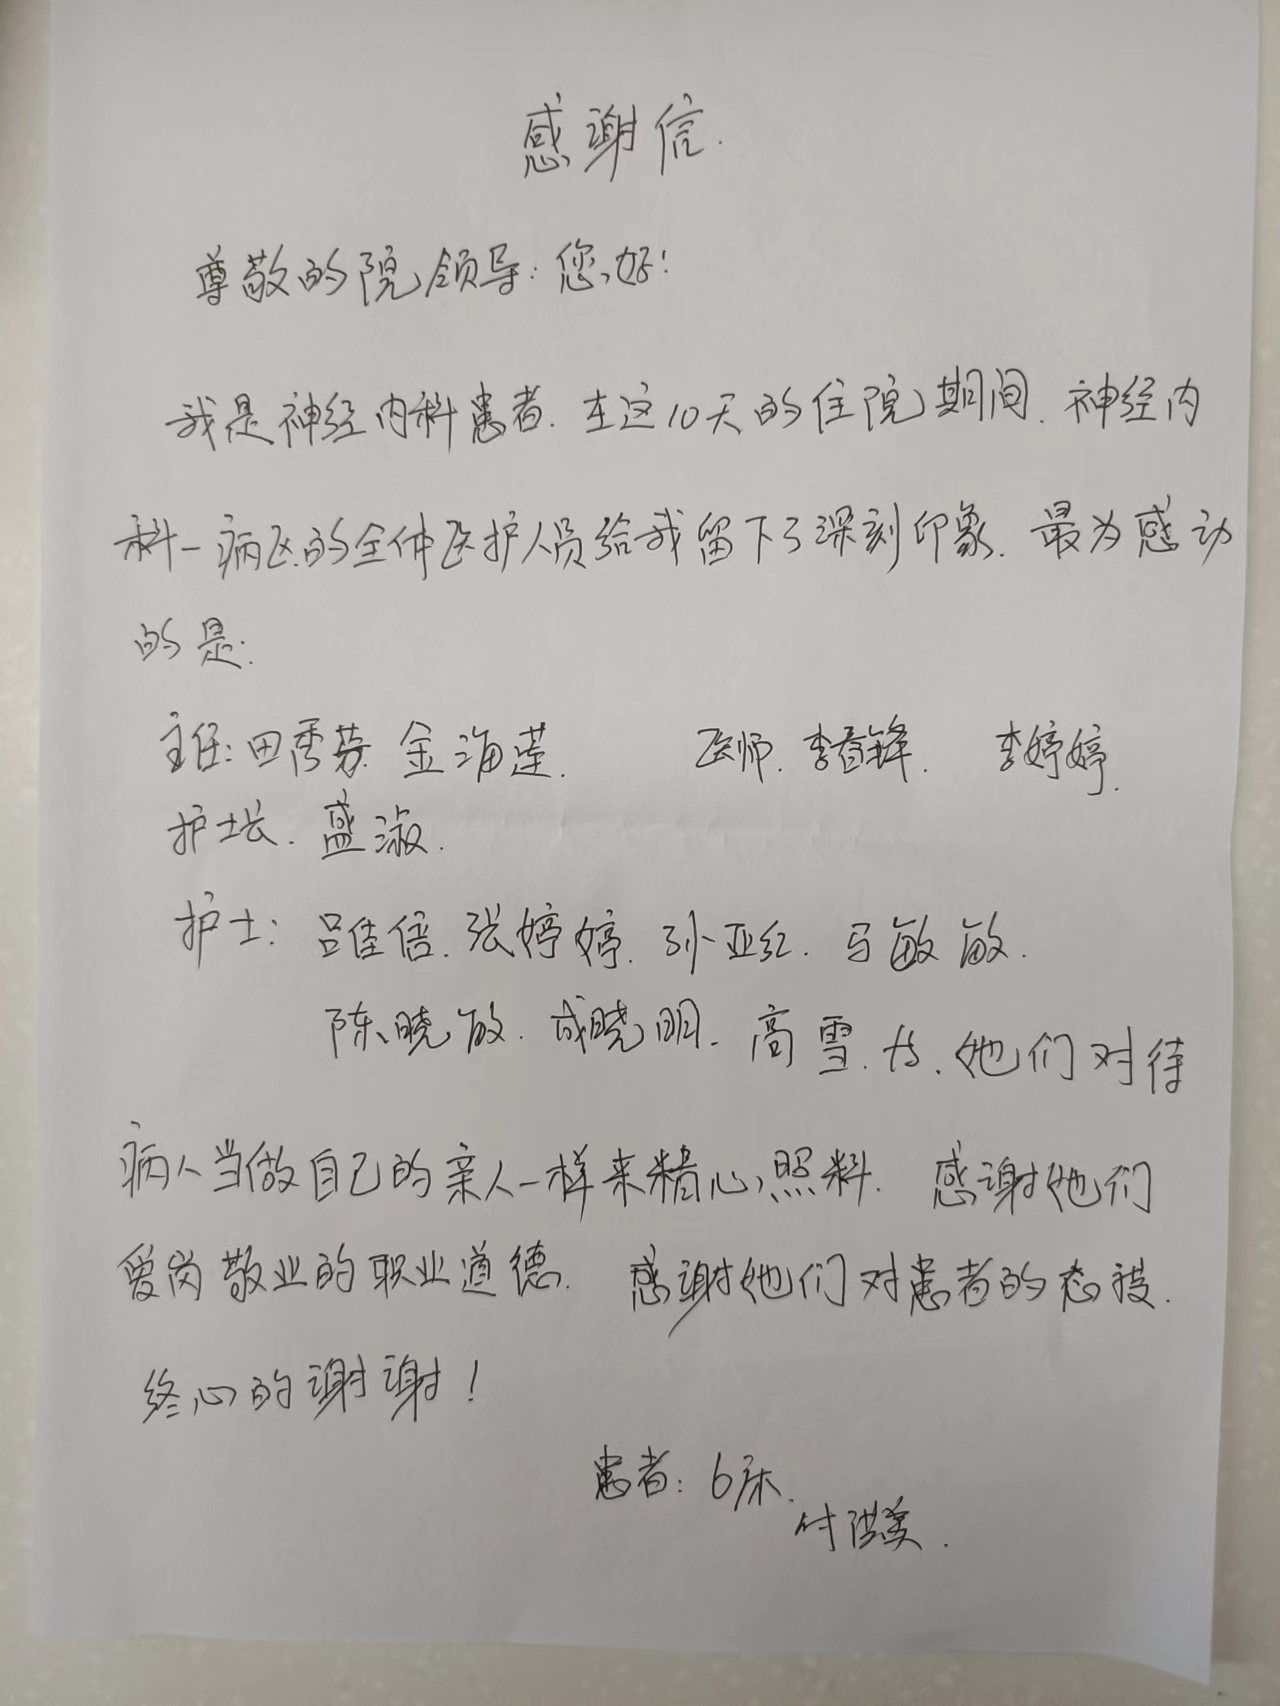 感谢信.
尊敬的院领导:您好!
我是神经内科患者.在这10天的住院期间.神经内
科一病区的全体医护人员给我留下了深刻印象.最为感动
的是:
主任:田秀芬 金海莲. 医师.李春锋. 李婷婷.
护士长.盛淑.
护士: 吕佳倍.张婷婷.孙亚红.马敏敏.
陈晓敏.成晓明.高雪.古.她们对待
病人当做自己的亲人一样来精心照料. 感谢她们
爱岗敬业的职业道德. 感谢她们对患者的态度.
终心的谢谢!
患者:6床.
付洪美.